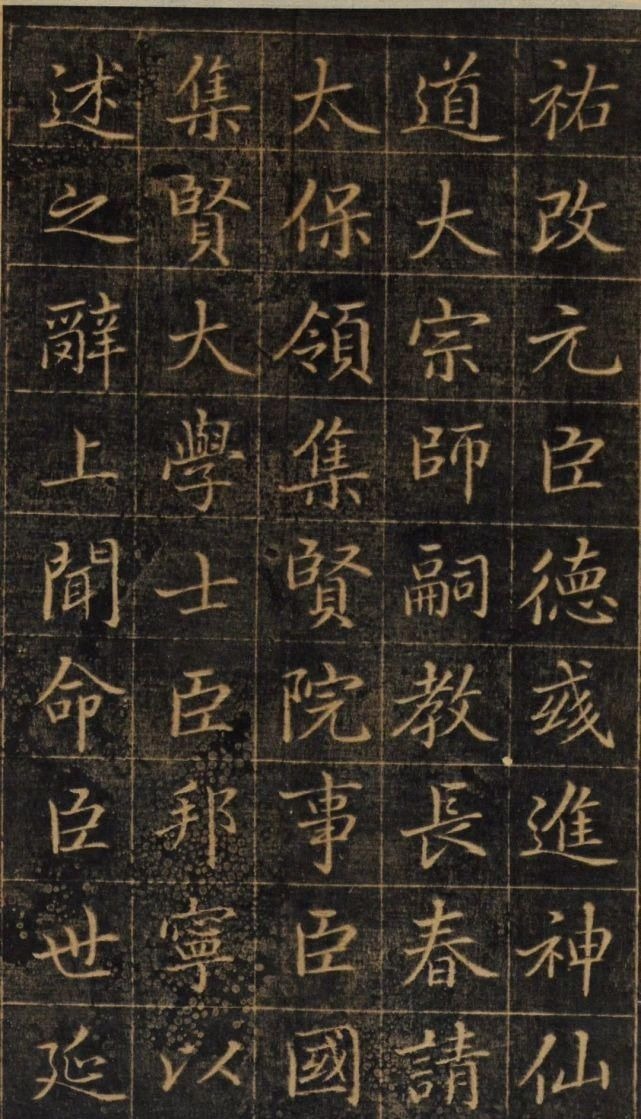 祐改元臣德彧進神仙
道大宗師嗣教長春請
太保領集賢院事臣國
集賢大學士臣邦寧以
述之辭上聞命臣世延